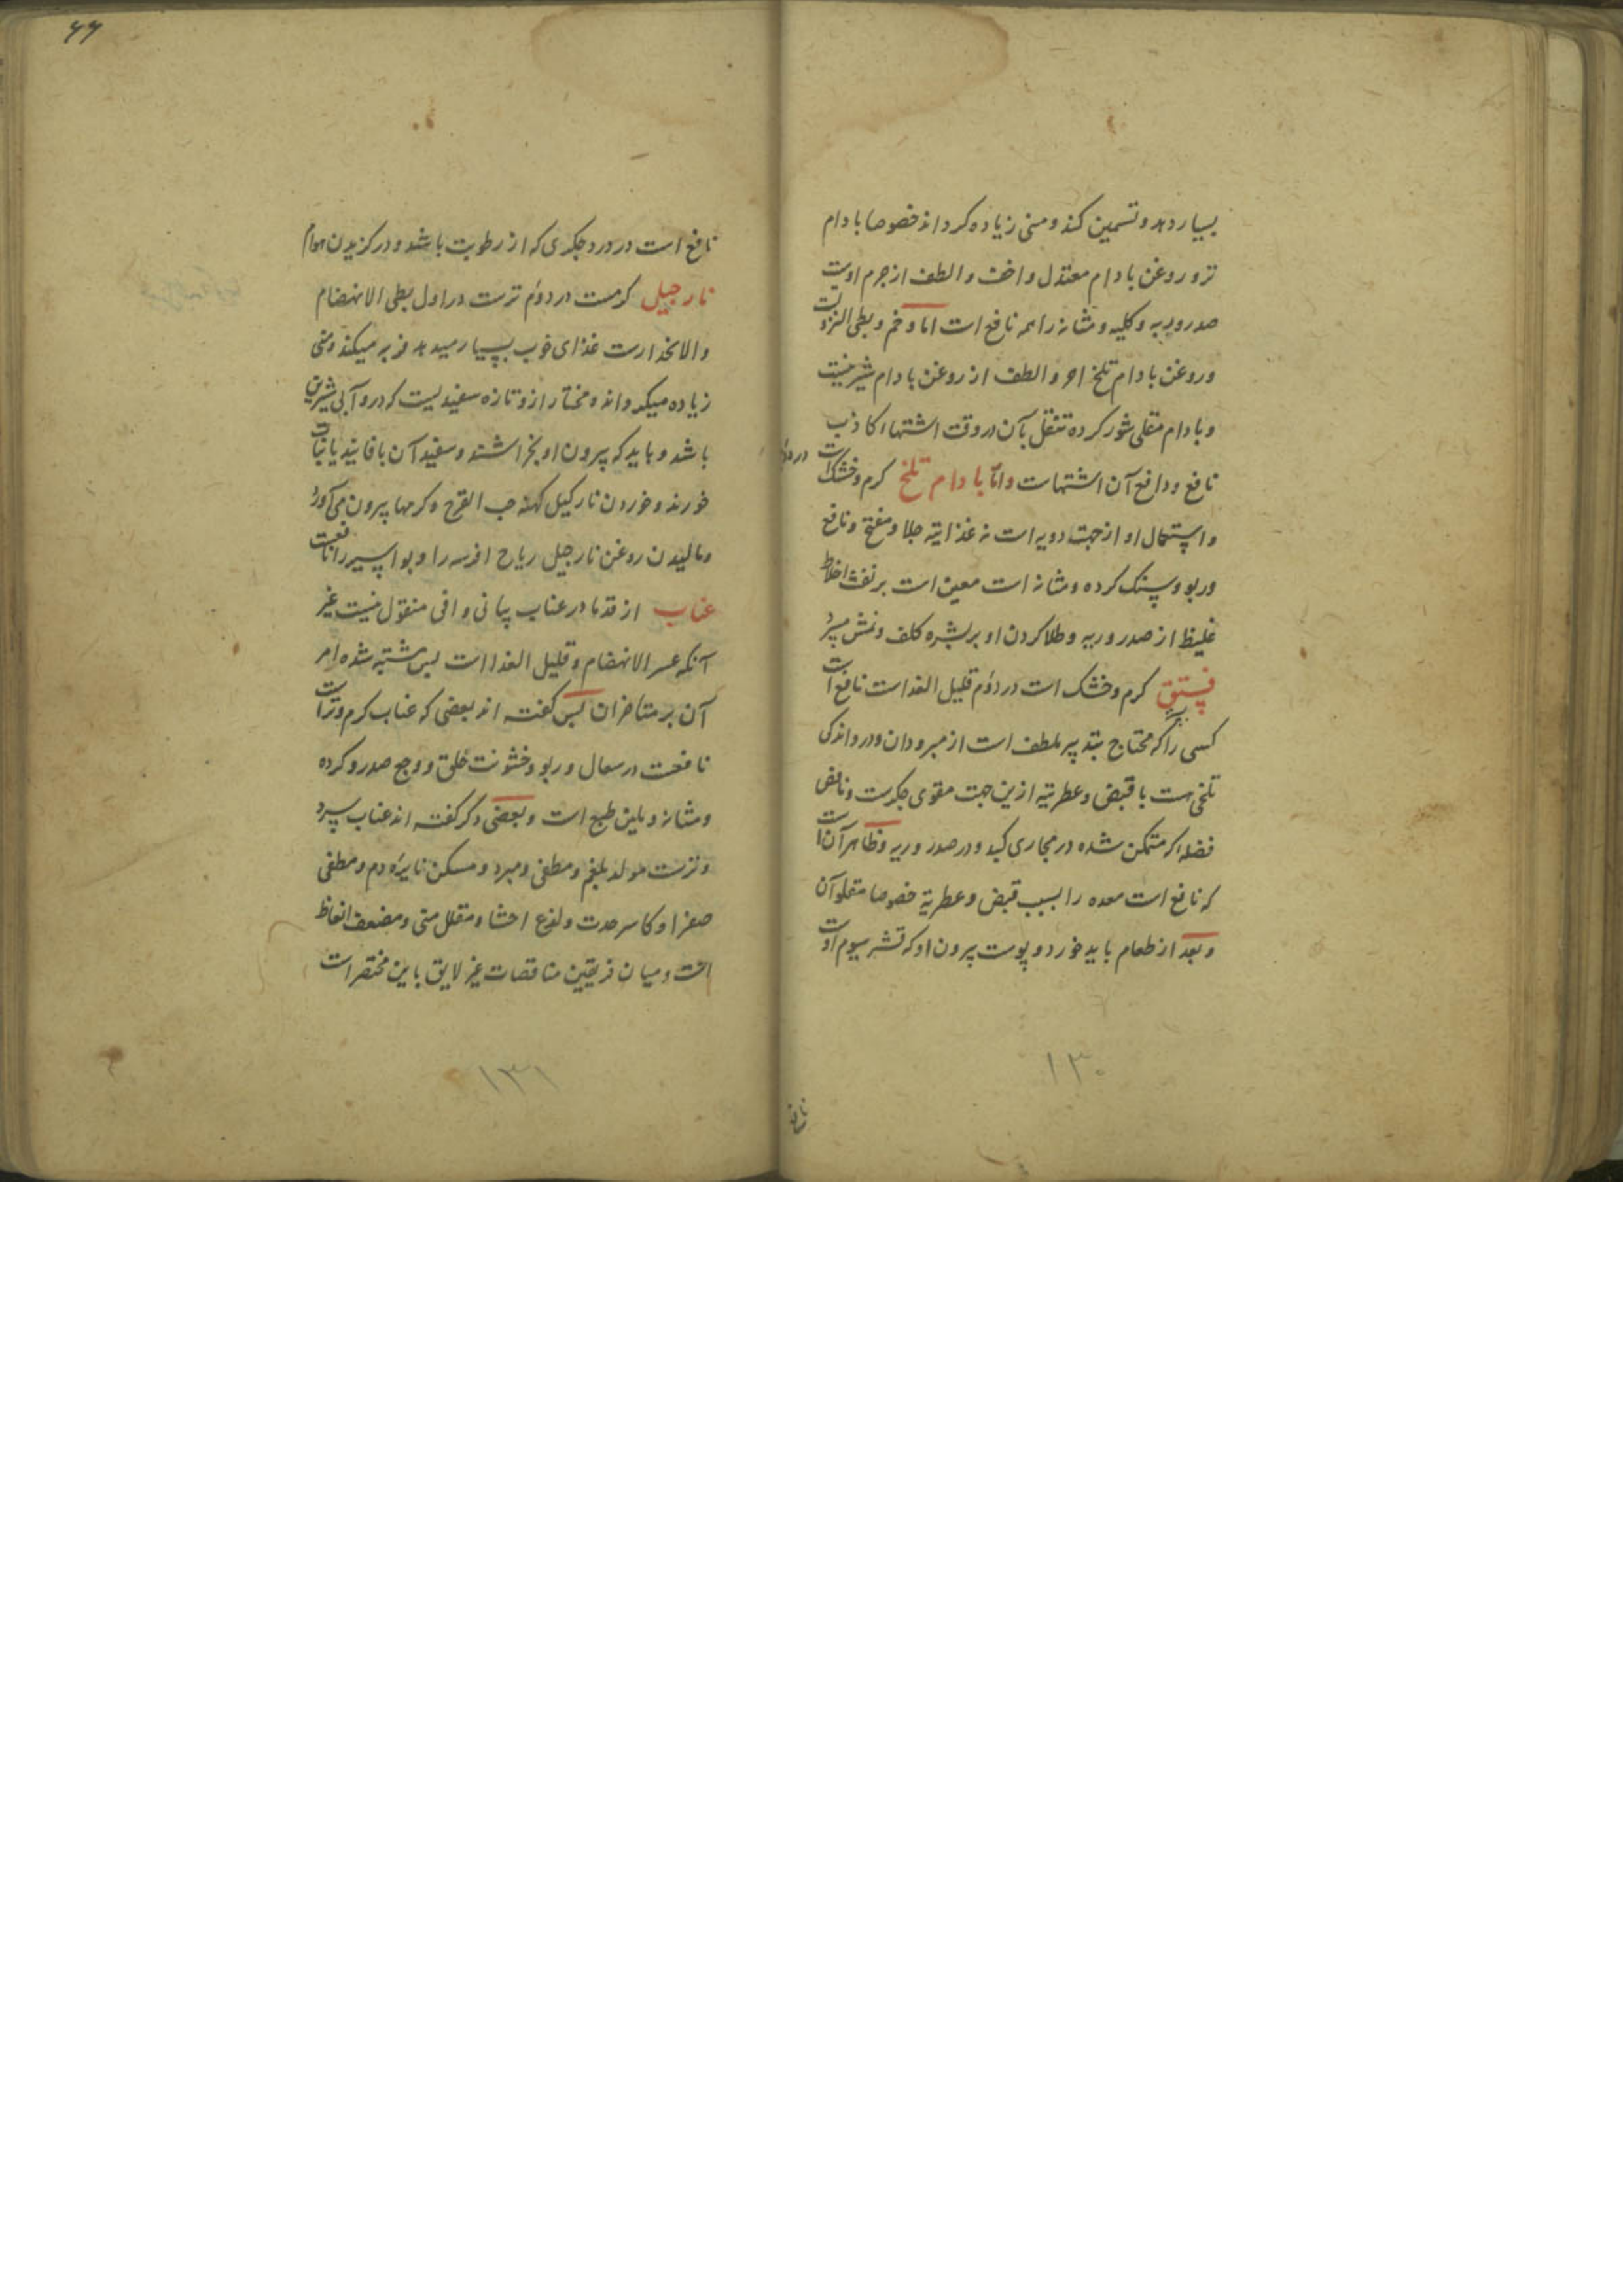 بسیار دهد و تسمین کند و منی زیاده کرداند خصوصا بادام
تر و روغن بادام معتدل و اخف و الطف از جرم اوست
صدر و ریه و کلیه و مثانه را همه نافع است اما وخم و بطی النزولست
و روغن بادام تلخ احر و الطف از روغن بادام شیرینست
و بادام مقلی شور کرده تنقل بآن در وقت اشتهاء کاذب
نافع و دافع آن اشتهاست و امّا بادام تلخ کرم و خشک است در دوم
و استعمال او از جهت دوییه است نه غذاییه جلا و مفتح و نافع
و ربو و سنک کرده و مثانه است معین است بر نفث اخلاط
غلیظ از صدر و ریه و طلا کردن او بر بشره کلف و نمش میبرد
فستق کرم و خشک است در دوّم قلیل الغذاست نافع است
کسی را که محتاج بتدبیر ملطف است از مبرودان و در و اندکی
تلخی هست با قبض و عطریه ازین جهت مقوی جکرست و نافض
فضله که متمکن شده در مجاری کبد و در صدر و ریه و ظاهر آن است
که نافع است معده را بسبب قبض و عطریة خصوصا مقلو آن
و بعد از طعام باید خورد و پوست بیرون او که قشر سیوم اوست
۱۳۰
نافع
۶۶
نافع است در درد جکری که از رطوبت باشد و در کزیدن هوام
نارجیل کرمست در دوّم ترست در اول بطی الانهضام
و الانحدارست غذای خوب بسیار میدهد فربه میکند و منی
زیاده میکرداند و مختار ازو تازه سفیدیست که درو آبی شیرین
باشد و باید که بیرون او بخراشند و سفید آن با فانید یا نبات
خورند و خوردن نارکیل کهنه حب القرع و کرمها بیرون می آورد
و مالیدن روغن نارجیل ریاح افرسه را و بواسیر را نافعست
عناب از قدما در عناب بیانی وافی منقول نیست غیر
آنکه عسر الانهضام و قلیل الغذا است پس مشتبه شده امر
آن بر متاخران پس کفته اند بعضی که عناب کرم و تر است
نافعست در سعال و ربو و خشونت حلق و وجع صدر و کرده
و مثانه و ملین طبع است و بعضی دکر کفته اند عناب سرد
و ترست مولد بلغم و مطفی و مبرد و مسکن نایره دم و مطفی
صفرا و کاسر حدت و لذع احشا و مقلل منی و مضعف انعاظ
است و میان فریقین مناقضات غیر لایق باین مختصر است
۱۳۱